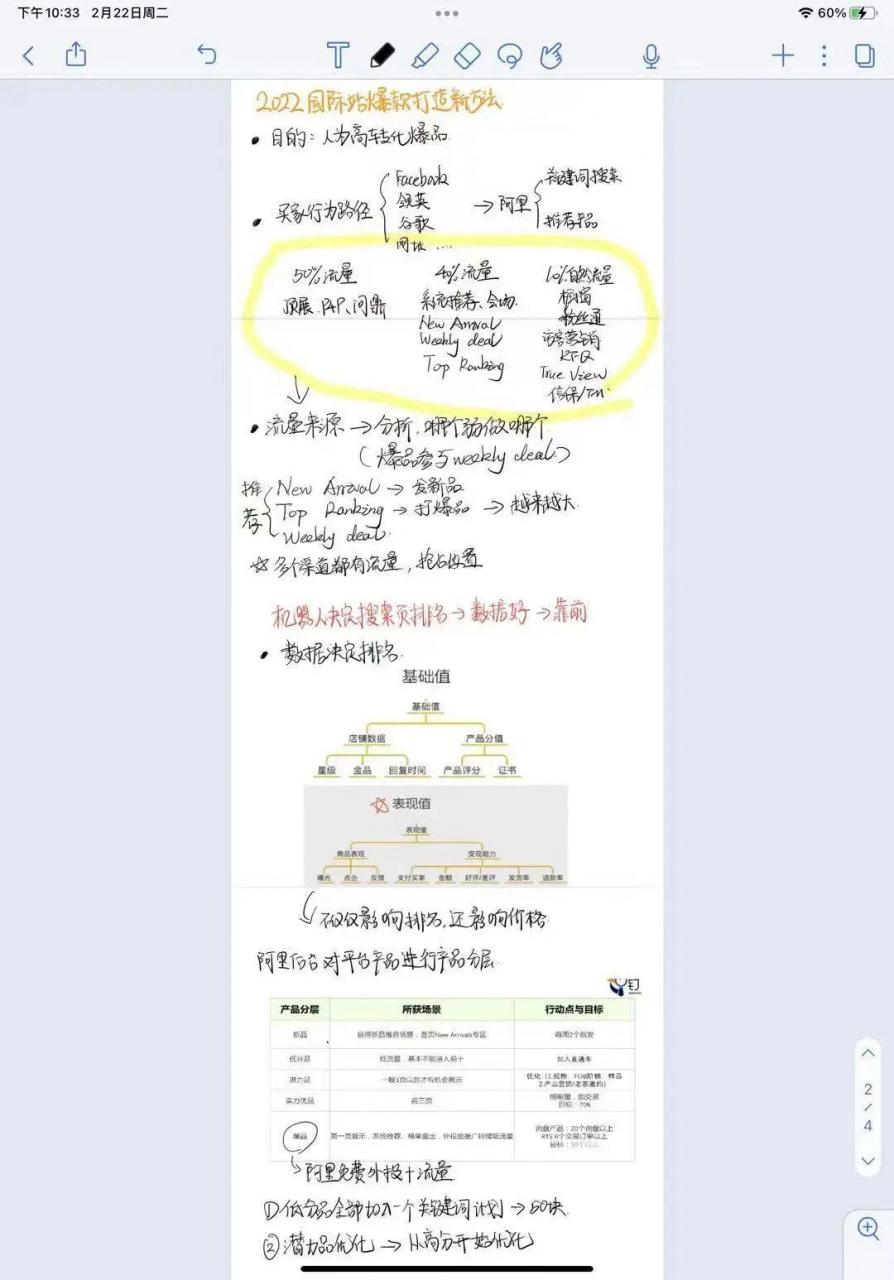 下午10:33 2月22日周二
60%
2022国际站爆款打造新方法
• 目的：人为高转化爆品
• 买家行为路径 Facebook 领英 谷歌 网址 ... → 阿里 关键词搜索 推荐产品
50%流量 40%流量 10%自然流量
顶展、P4P、问鼎 系统推荐、会场 橱窗
New Arrival 粉丝通
Weekly deal 访客营销
RFQ
Top Ranking True View
信保/TM
• 流量来源 → 分析，哪个弱做哪个
（爆品参与weekly deal）
推荐 New Arrival → 发新品
Top Ranking → 打爆品 → 越来越大
Weekly deal
☆ 多个渠道都有流量，抢占位置
机器人决定搜索页排名 → 数据好 → 靠前
• 数据决定排名
基础值
基础值
店铺数据 产品分值
星级 金品 回复时间 产品评分 证书
☆ 表现值
表现值
商品表现 变现能力
曝光 点击 反馈 支付买家 金额 好评/差评 发货率 退款率
不仅仅影响排名，还影响价格
阿里后台对平台产品进行产品分层
钉
产品分层 所获场景 行动点与目标
新品 获得新品推荐场景，首页New Arrivals专区 每周2个新发
低分品 低流量，基本不能进入前十 加入直通车
潜力品 一般3页以后才有机会展示 优化（1.规格、FOB阶梯、样品
2.产品营销/老客邀约）
实力优品 前三页 绑橱窗，加交易
目标：70%
爆品 第一页展示，系统推荐、榜单露出，外投放推广持续吸流量 询盘产品：20个询盘以上
RTS 6个交易订单以上
目标：10个以上
阿里免费外投+流量
①低分品全部加入一个关键词计划 → 50块
②潜力品优化 → 从高分开始优化
2
/
4